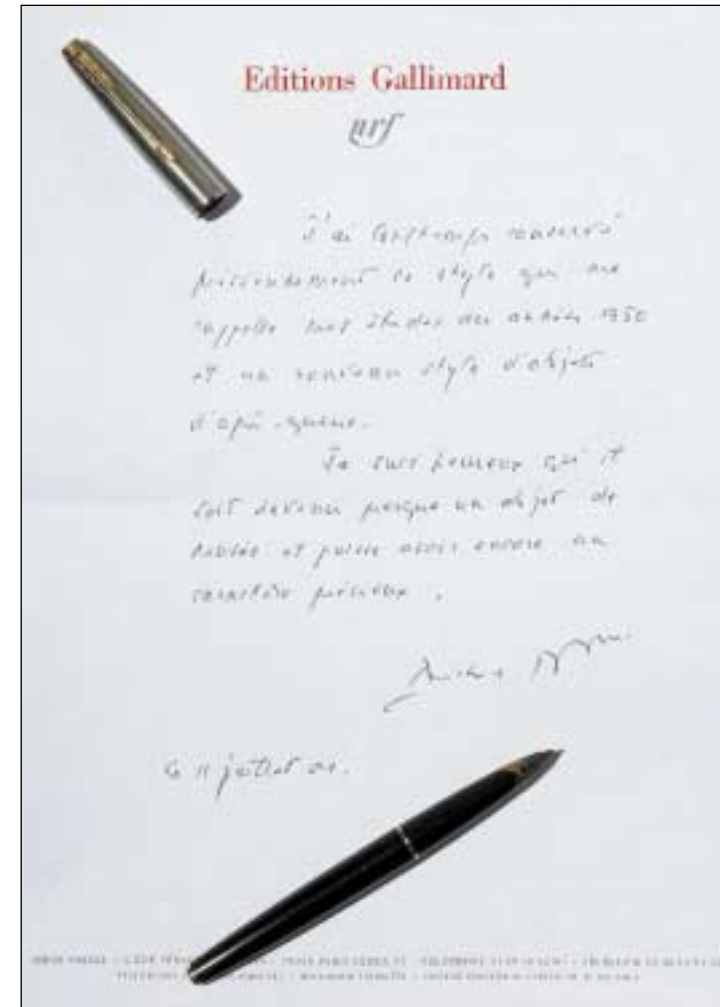 Editions Gallimard
nrf
J'ai longtemps conservé
précieusement ce stylo qui me
rappelle mes études des années 1950
et un nouveau style d'objets
d'après-guerre.
Je suis heureux qu'il
soit devenu presque un objet de
musée et puisse avoir encore un
caractère précieux.
Le 11 juillet 01.